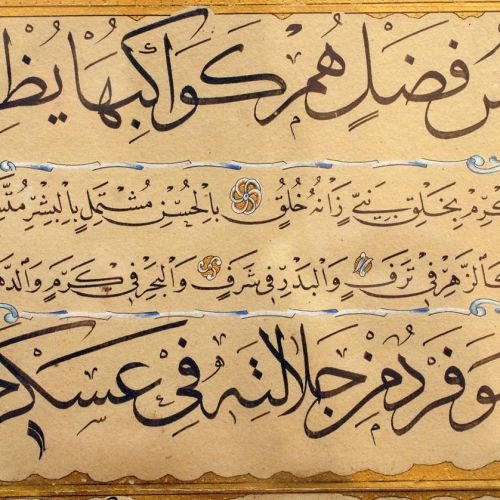 س فَضْلٍ هُمْ كَوَاكِبُهَا يُظْ
ـرِمْ بِخَلْقِ نَبِيٍّ زَانَهُ خُلُقٌ بِالْحُسْنِ مُشْتَمِلٍ بِالْبِشْرِ مُتَّسِ
ـالزَّهْرِ فِي تَرَفٍ وَالْبَدْرِ فِي شَرَفٍ وَالْبَحْرِ فِي كَرَمٍ وَالدَّهـ
ـوَ فَرْدٌ مِنْ جَلَالَتِهِ فِي عَسْكَرٍ